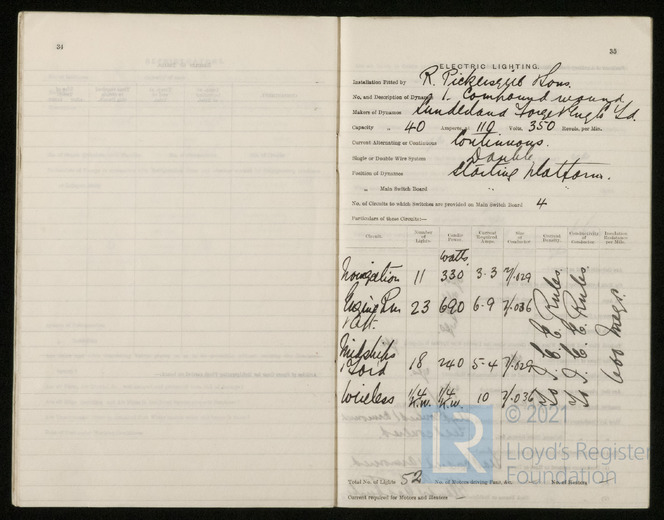 34
35
ELECTRIC LIGHTING.
Installation Fitted by R. Pickersgill & Sons.
No. and Description of Dynamos 1. Compound wound
Makers of Dynamos Sunderland Forge & Eng. Co Ld.
Capacity „ 40 Amperes, at 110 Volts, 350 Revols. per Min.
Current Alternating or Continuous Continuous.
Single or Double Wire System Double
Position of Dynamos Starting platform.
„ Main Switch Board „ „
No. of Circuits to which Switches are provided on Main Switch Board 4
Particulars of these Circuits:—
Circuit. Number of Lights. Candle Power. Current Required Amps. Size of Conductor. Current Density. Conductivity of Conductor. Insulation Resistance per Mile.
watts.
Navigation 11 330 3·3 7/.029
Engine Rm & Aft. 23 690 6·9 7/.036
Midships & Ford 18 240 5·4 7/.029
Wireless 1/4 K.W. 1/4 K.W. 10 7/.036
To I. E. E. Rules.
To I. E. E. Rules.
600 megs.
Total No. of Lights 52 No. of Motors driving Fans, &c. No. of Heaters
Current required for Motors and Heaters
LR
© 2021
Lloyd's Register
Foundation